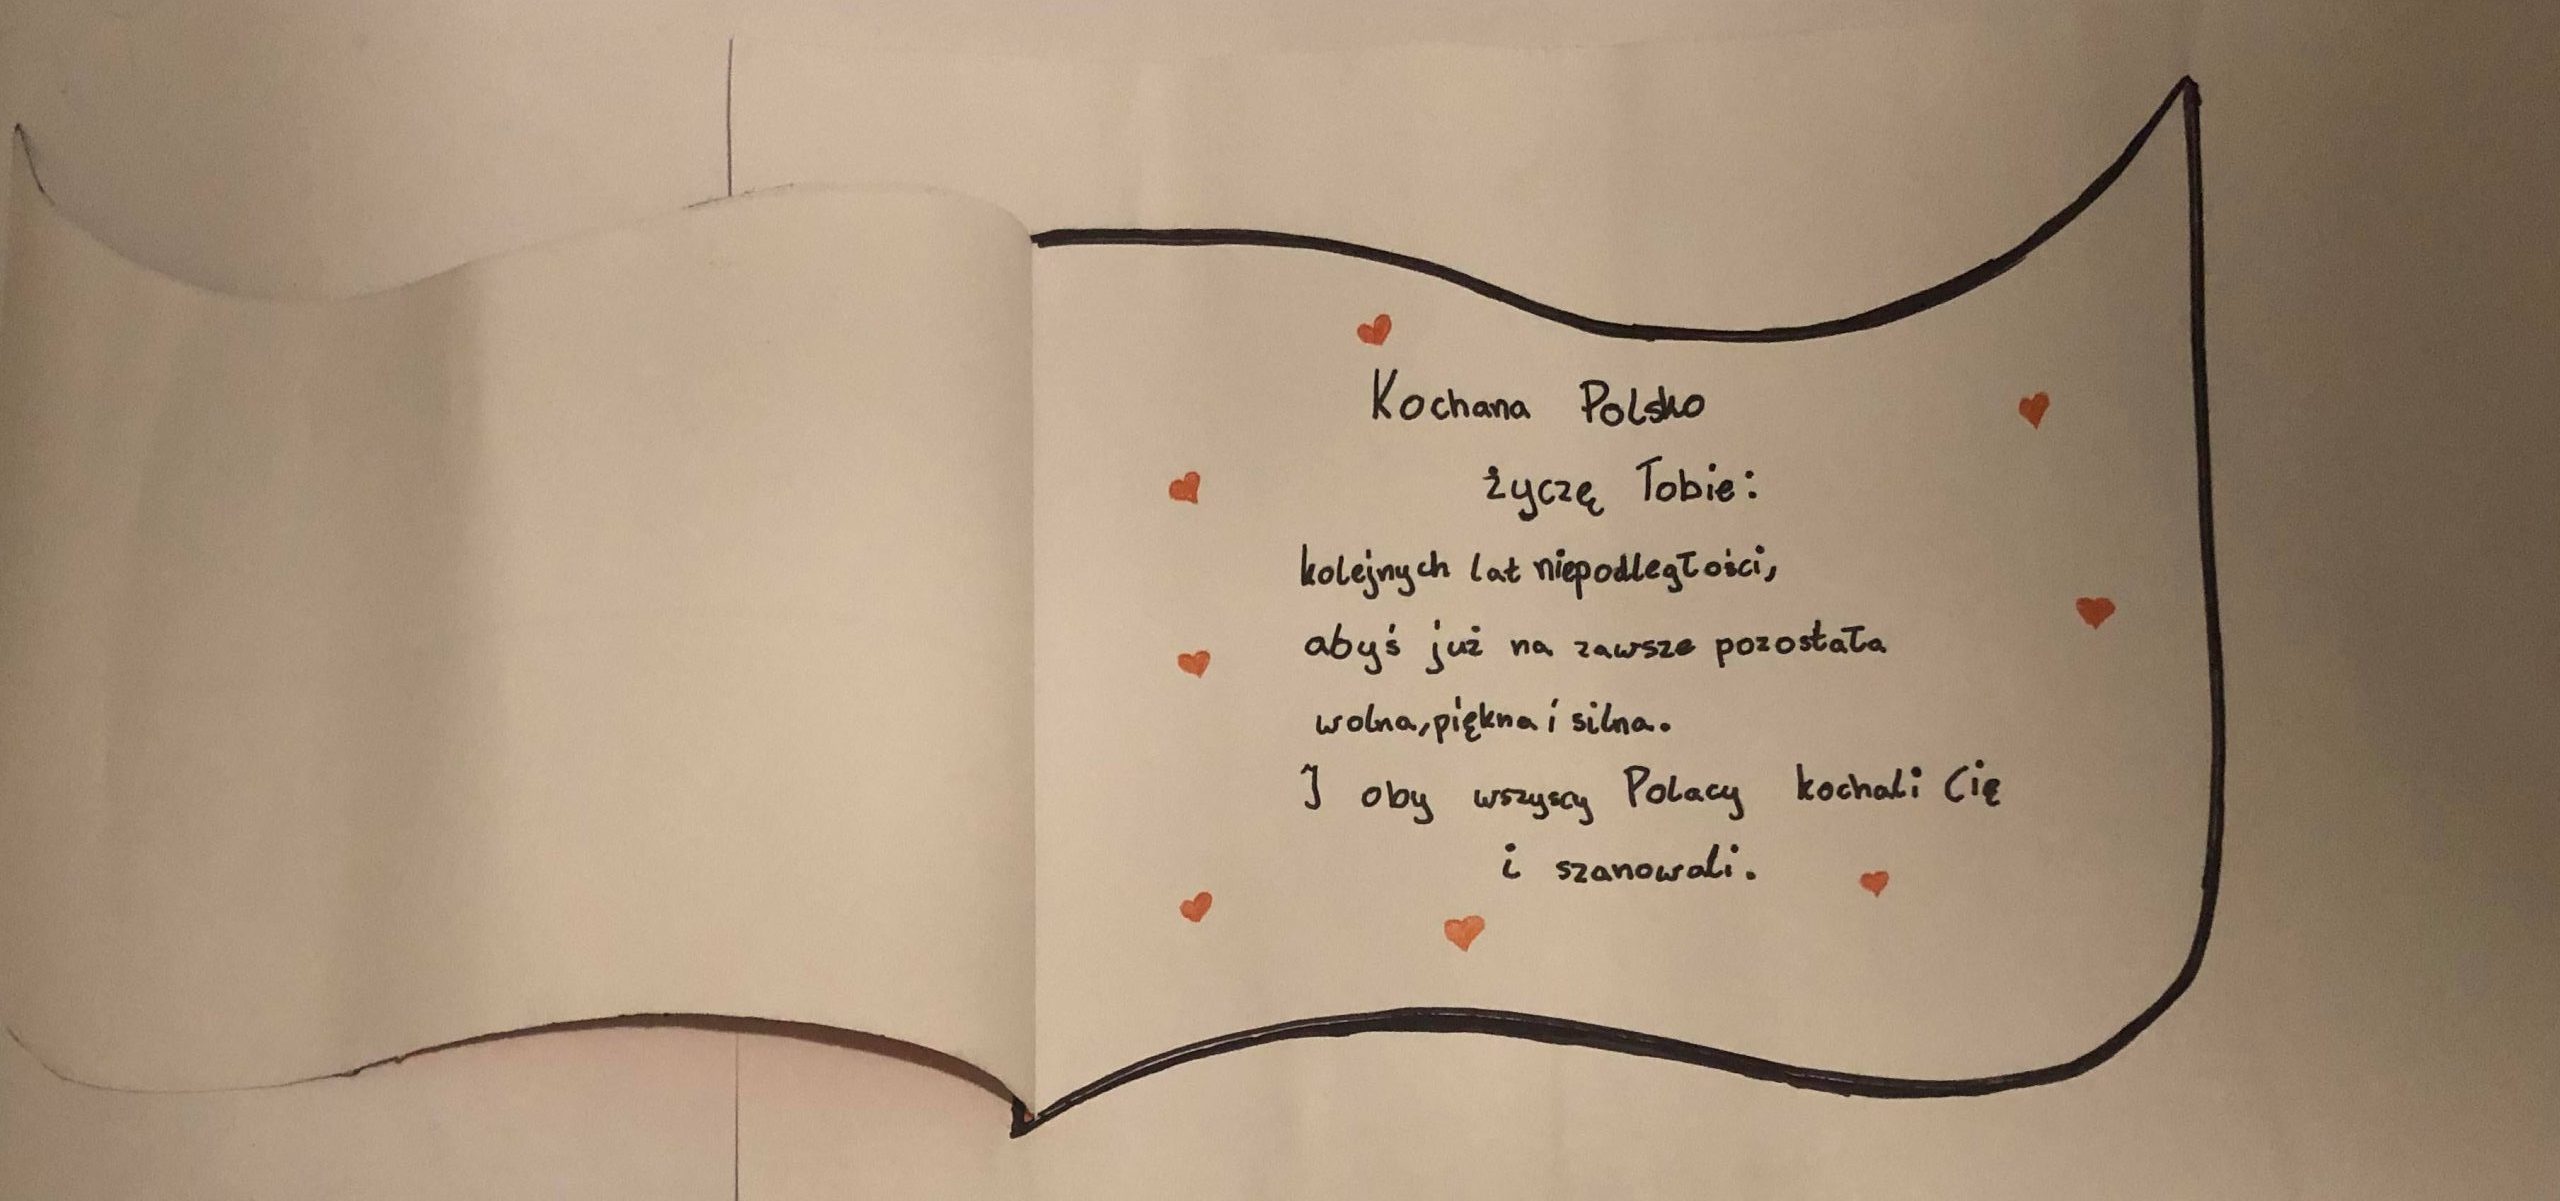 Kochana Polsko
życzę Tobie:
kolejnych lat niepodległości,
abyś już na zawsze pozostała
wolna, piękna i silna.
I oby wszyscy Polacy kochali Cię
i szanowali.